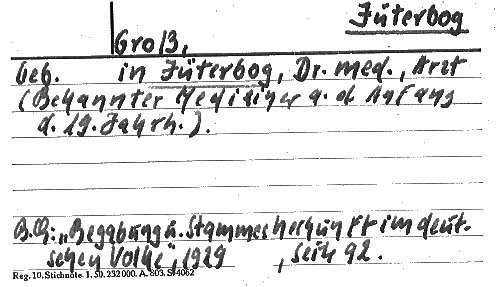 Jüterbog
Groß,
Geb. in Jüterbog, Dr. med., Arzt
(Bekannter Mediziner a. d. Anfang
d. 19. Jahrh.).
B. Ch: „Begabung u. Stammesherkunft im deut-
schen Volke", 1929, Seite 92.
Reg. 10. Stichnote 1. 50. 232000. A. 803. S/4062